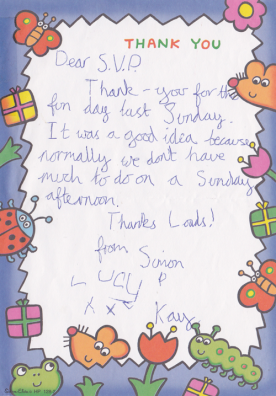 THANK YOU
Dear S.V.P.
Thank-you for the
fun day last Sunday.
It was a good idea because
normally we don't have
much to do on a Sunday
afternoon.
Thanks Loads!
from
Simon
LUCY
x x
Kay